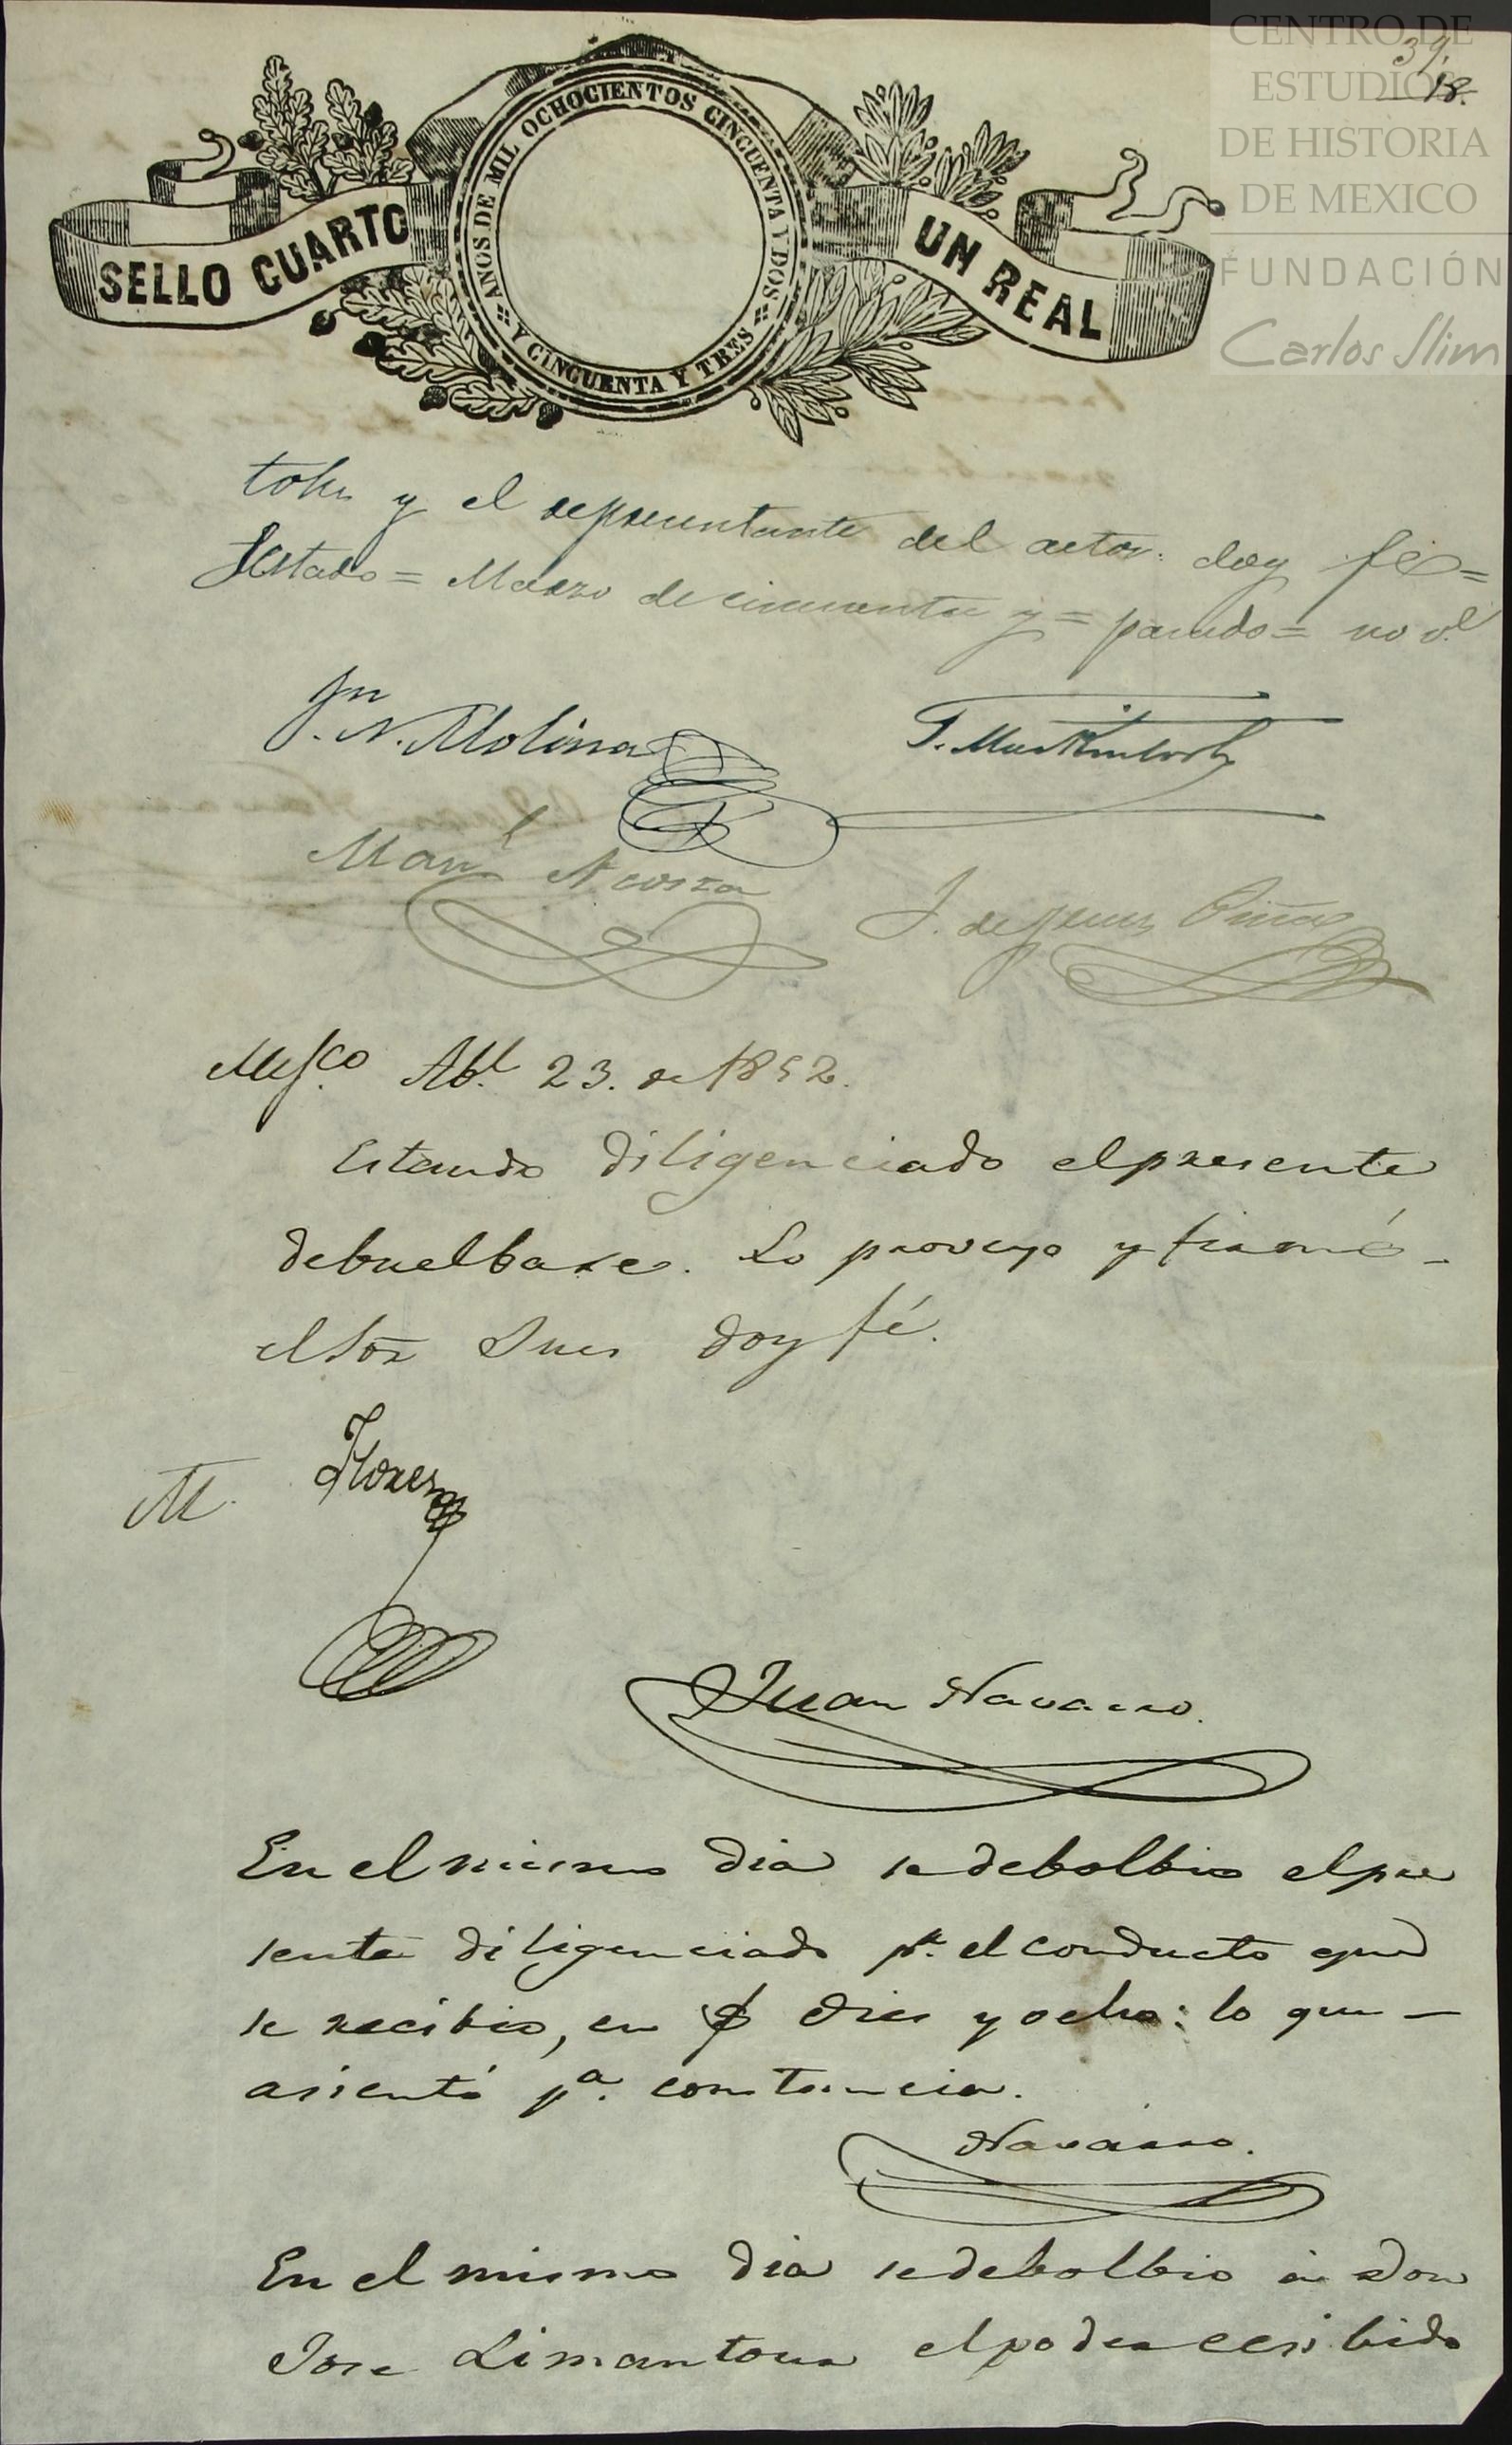 CENTRO DE
ESTUDIOS
DE HISTORIA
DE MEXICO
FUNDACIÓN
Carlos Slim
39.
18.
SELLO CUARTO
AÑOS DE MIL OCHOCIENTOS CINCUENTA Y DOS
Y CINCUENTA Y TRES
UN REAL
y el representante del actor. doy fé=
Testado= Marzo de cincuenta y= pasado= no v.e
Jn. N. Molina
Manl Acosta
J. de Jesus Piña
Mejco. Abl. 23. de 1852.
Estando diligenciado el presente
debuelbase. Lo proveyo y firmó -
el Sor Jues doy fé.
M. Flores
Juan Navarro.
En el mismo dia se debolbio el pre
sente diligenciado pr. el conducto que
se recibio, en f dies y ocho: lo que -
asientó pa. constancia.
Navarro.
En el mismo dia se debolbio a Don
Jose Limantour el poder ecsibido